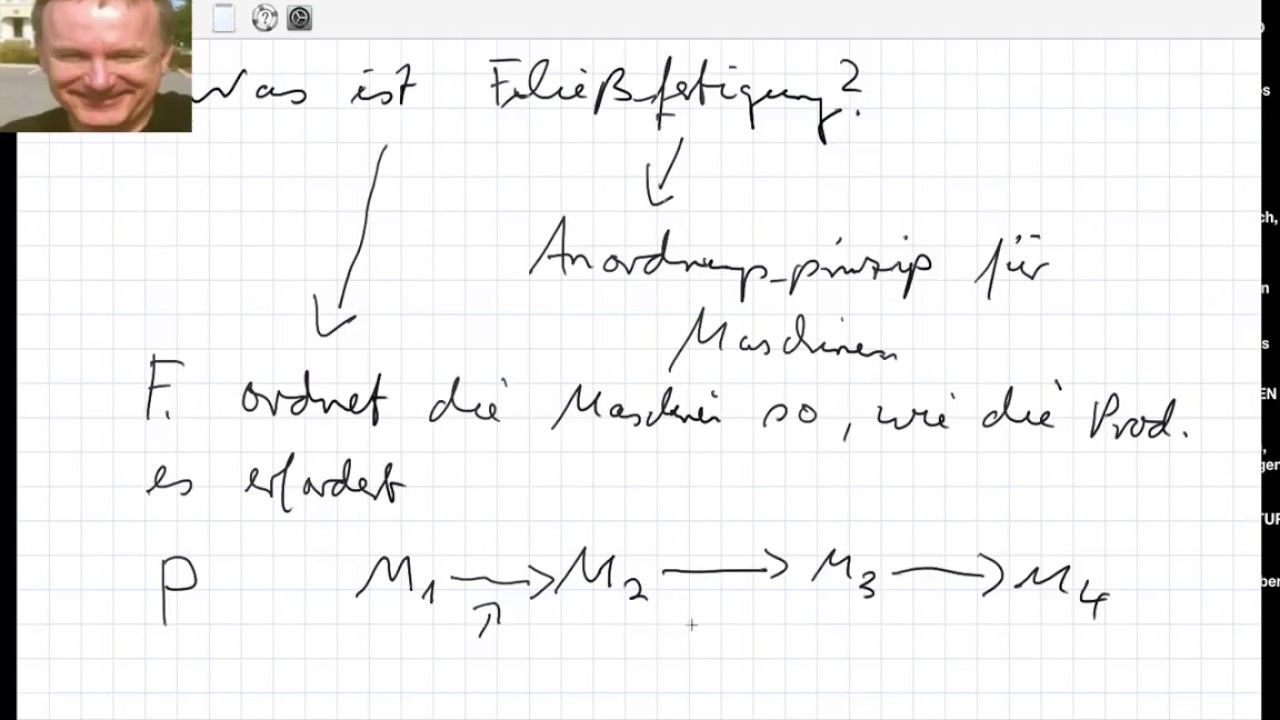 Was ist Fließfertigung?
Anordnungsprinzip für
Maschinen
F. ordnet die Maschinen so, wie die Prod.
es erfordert
P M1 → M2 → M3 → M4
os
ch,
n
s
EN
,
gen
TUR
ber